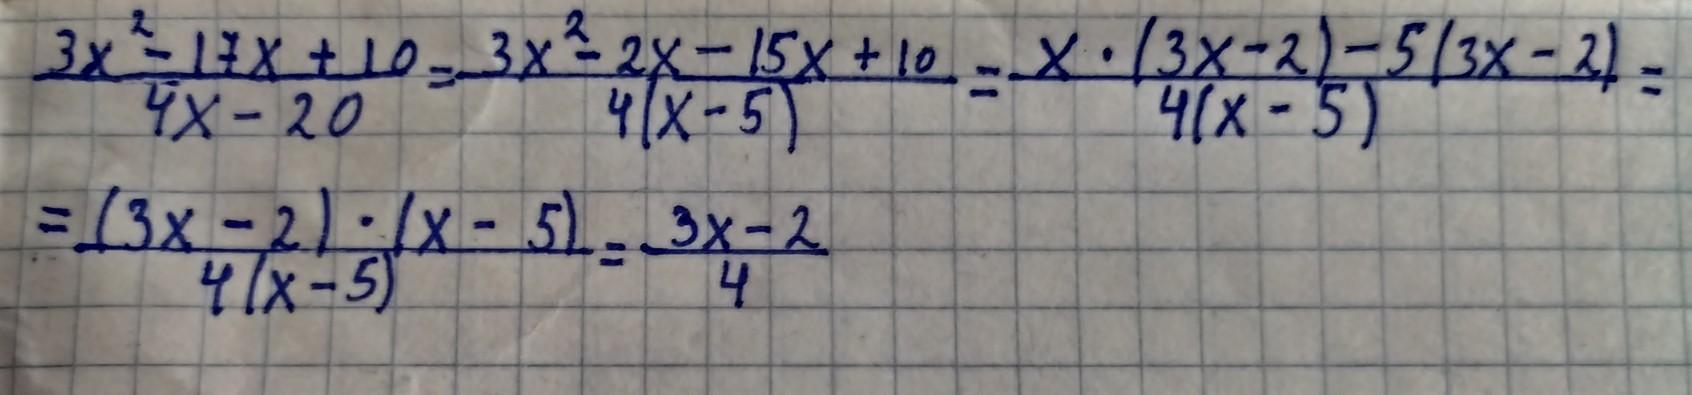 (3x² - 17x + 10)/(4x - 20) = (3x² - 2x - 15x + 10)/(4(x - 5)) = (x · (3x - 2) - 5(3x - 2))/(4(x - 5)) =
= ((3x - 2) · (x - 5))/(4(x - 5)) = (3x - 2)/4